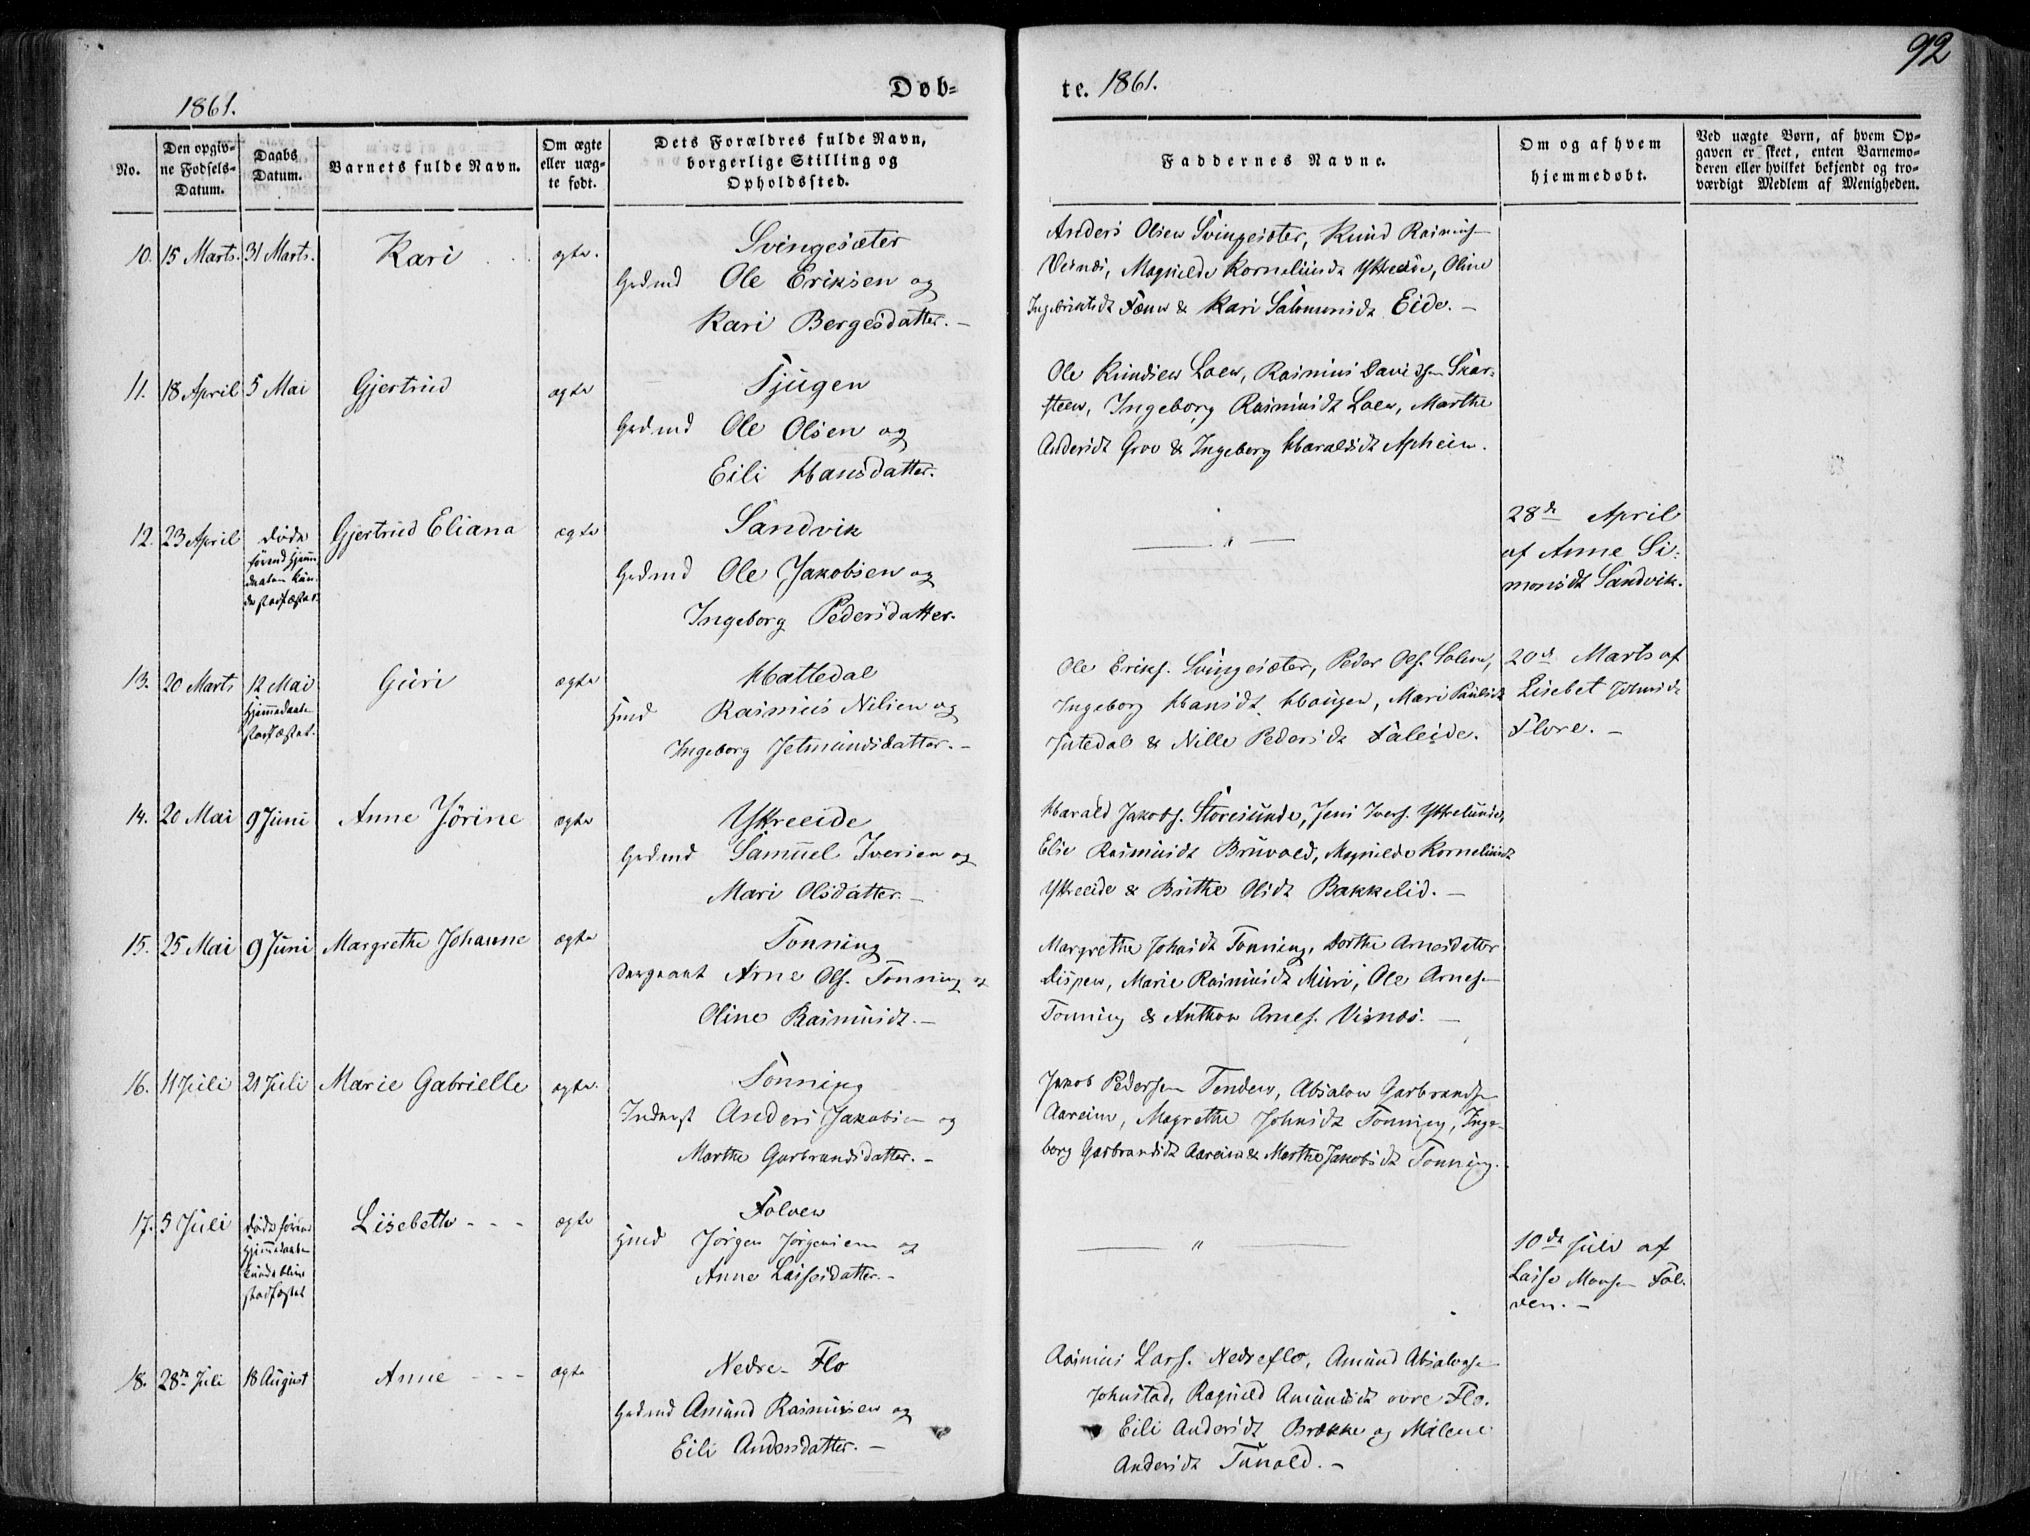 92
1861.
Døb-
te. 1861.
No.
Den opgiv-
ne Fødsels-
Datum.
Daabs
Datum.
Barnets fulde Navn.
Om ægte
eller uæg-
te født.
Dets Forældres fulde Navn,
borgerlige Stilling og
Opholdssted.
Faddernes Navne.
Om og af hvem
hjemmedøbt.
Ved uægte Børn, af hvem Op-
gaven er skeet, enten Barnemo-
deren eller hvilket bekjendt og tro-
værdigt Medlem af Menigheden.
10. 15 Marts. 31 Marts. Kari ægte.
Svingesæter
Gdmd Ole Eriksen og
Kari Bergesdatter. -
Anders Olsen Svingesæter, Knud Rasmus-
Visnæs, Magnilde Korneliusdt Yttreeide, Oline
Ingebrigtsdt Fænn & Kari Salomonsdt Eide. -
11. 18 April 5 Mai Gjertrud ægte
Tjugen
Gdmd Ole Olsen og
Eili Hansdatter.
Ole Knudsen Loen, Rasmus Davidsen Skar-
steen, Ingeborg Rasmusdt Loen, Marthe
Andersdt Grov & Ingeborg Haraldsdt Apheim.
12. 23 April døde
forend Hjem-
daaben kun-
de stadfæstes. Gjertrud Eliana ægte
Sandvik
Gdmd Ole Jakobsen og
Ingeborg Pedersdatter.
— " —
28de April
af Anne Si-
monsdt Sandvik.
13. 20 Marts 12 Mai
Hjemmedaaben
stadfæstet. Guri ægte
Hattedal
Hmd Rasmus Nilsen og
Ingeborg Jetmundsdatter. -
Ole Eriks. Svingesæter, Peder Ols. Solem,
Ingeborg Hansdt. Haugen, Mari Paulsdt
Jutedal & Nille Pedersdt Faleide.
20de Marts af
Lisebet Johnsdt
Flore. -
14. 20 Mai 9 Juni Anne Jørine ægte
Yttreeide
Gdmd Samuel Iversen og
Mari Olsdatter. -
Harald Jakobs. Storesunde, Jens Ivers. Yttrelunde,
Elie Rasmusdt Bruvold, Magnilde Kornelusdt
Yttreeide & Brithe Olsdt Bakkelid. -
15. 25 Mai 9 Juni Margrethe Johanne ægte
Tonning
Sergeant Arne Ols. Tonning og
Oline Rasmusdt. -
Margrethe Johnsdt Tonning, Dorthe Arnesdatter
Dispen, Marie Rasmusdt Muri, Ole Arnesen
Tonning & Anthon Arnes. Visnæs. -
16. 11 Juli 21 Juli Marie Gabrielle ægte.
Tonning
Inderst Anders Jakobsen og
Marthe Garbrandsdatter. -
Jakob Pedersen Tenden, Absalon Garbrandsen
Aareim, Magrethe Johnsdt Tonning, Inge-
borg Garbrandsdt Aareim & Marthe Jakobsdt Tonning.
17. 5 Juli døde forend
Hjemmedaaben
kunde blive
stadfæstet Lisebeth - - - ægte
Folven
Hmd Jørgen Jørgensen og
Anne Lassesdatter. -
— " —
10de Juli af
Lasse Monsen Fol-
ven. -
18. 28de Juli 18 August Anne - - - ægte
Nedre- Flo
Gdmd Amund Rasmussen og
Eili Andersdatter. -
Rasmus Lars. Nedreflo, Amund Absalonsen
Johnstad, Ragnild Amundsdt øvre Flo.
Eili Andersdt Brække og Malene
Andersdt Tunold. -